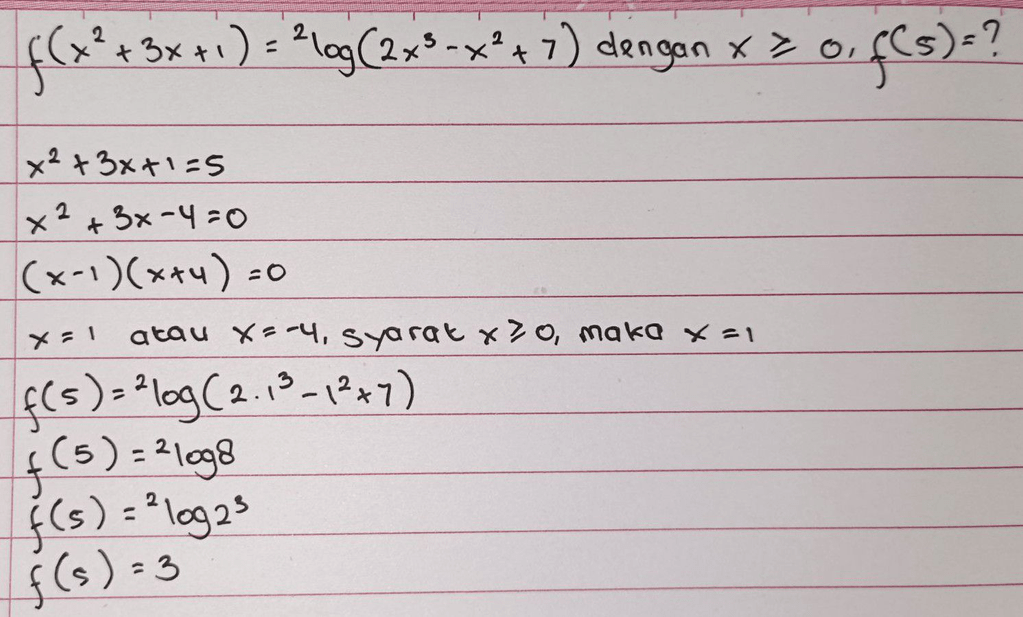 f(x² + 3x + 1) = ²log(2x³ - x² + 7) dengan x ≥ 0, f(5) = ?
x² + 3x + 1 = 5
x² + 3x - 4 = 0
(x - 1)(x + 4) = 0
x = 1 atau x = -4, syarat x ≥ 0, maka x = 1
f(5) = ²log(2.1³ - 1² + 7)
f(5) = ²log8
f(5) = ²log2³
f(5) = 3